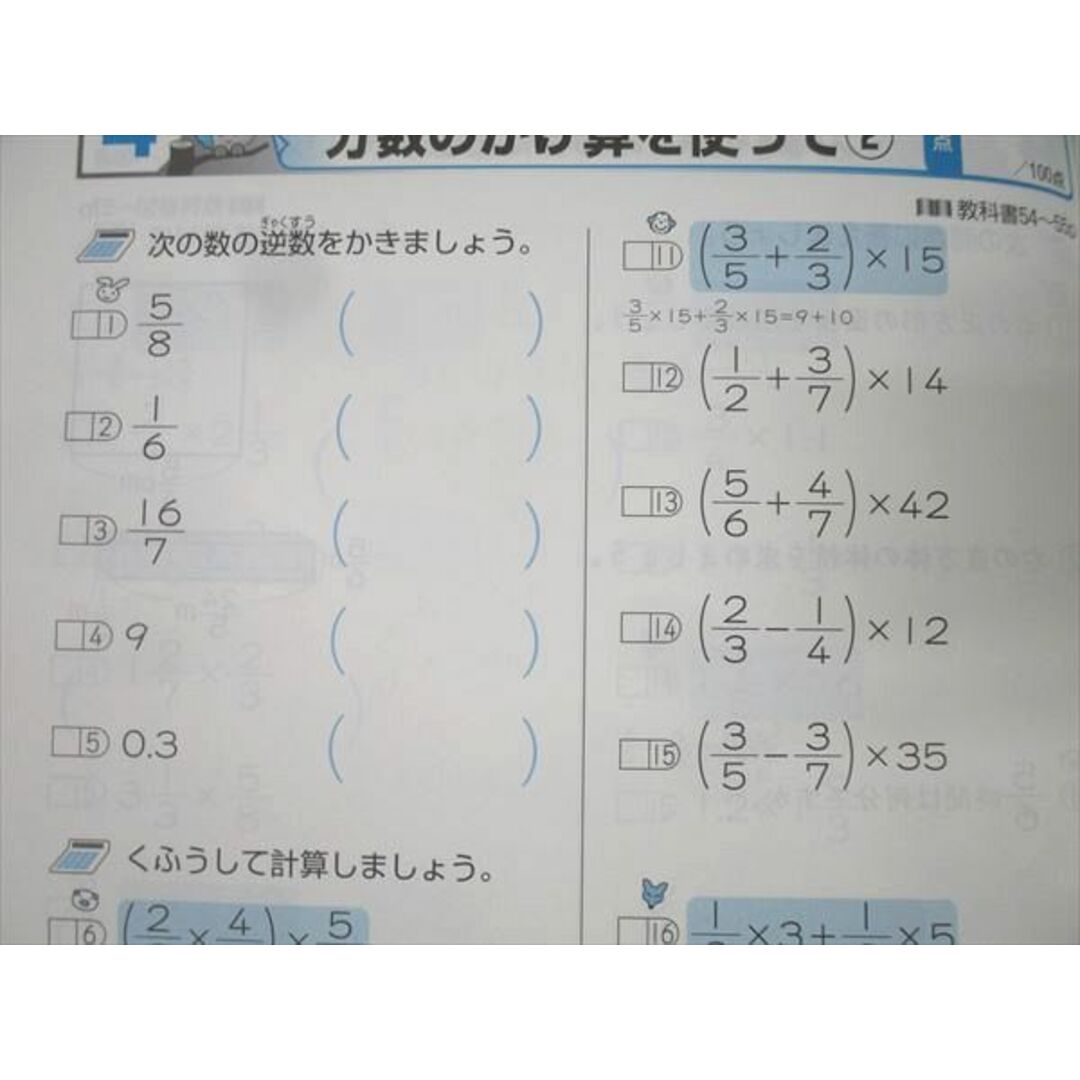 4 分数のかけ算を使って②
点
/100点
教科書54~55
ぎゃくすう
次の数の逆数をかきましょう。
1 5/8 ( )
2 1/6 ( )
3 16/7 ( )
4 9 ( )
5 0.3 ( )
くふうして計算しましょう。
6 (2/ × 4/ ) × 5/
11 (3/5 + 2/3) × 15
3/5 × 15 + 2/3 × 15 = 9 + 10
12 (1/2 + 3/7) × 14
13 (5/6 + 4/7) × 42
14 (2/3 − 1/4) × 12
15 (3/5 − 3/7) × 35
16 1/ × 3 + 1/ × 5